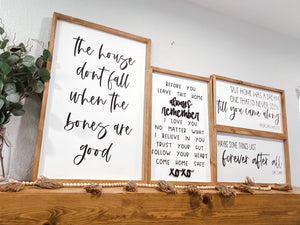 the house
don't fall
when the
bones are
good
BEFORE YOU
LEAVE THIS HOME
always
remember
I LOVE YOU
NO MATTER WHAT
I BELIEVE IN YOU
TRUST YOUR GUT
FOLLOW YOUR HEART
COME HOME SAFE
XOXO
BUT HOME WAS A DREAM
ONE THAT I'D NEVER SEEN
till you came along
MAYBE SOME THINGS LAST
forever after all